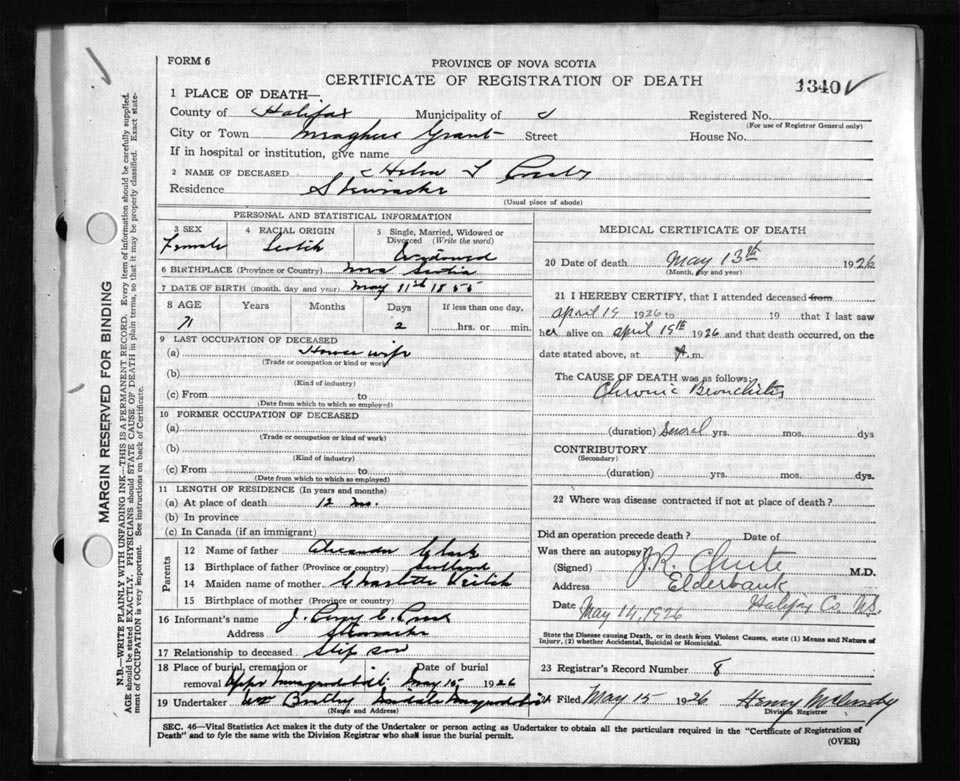 FORM 6
PROVINCE OF NOVA SCOTIA
CERTIFICATE OF REGISTRATION OF DEATH
1340
1 PLACE OF DEATH—
County of Halifax Municipality of Registered No.
(For use of Registrar General only)
City or Town Grant Street House No.
If in hospital or institution, give name
2 NAME OF DECEASED Helen
Residence
(Usual place of abode)
PERSONAL AND STATISTICAL INFORMATION
3 SEX 4 RACIAL ORIGIN 5 Single, Married, Widowed or Divorced (Write the word)
Female Scotish Widowed
6 BIRTHPLACE (Province or Country) Nova Scotia
7 DATE OF BIRTH (month, day and year) May 11th 1855
8 AGE Years Months Days If less than one day,
71 2 hrs. or min.
9 LAST OCCUPATION OF DECEASED
(a) House wife
(Trade or occupation or kind of work)
(b)
(Kind of industry)
(c) From to
(Date from which to which so employed)
10 FORMER OCCUPATION OF DECEASED
(a)
(Trade or occupation or kind of work)
(b)
(Kind of industry)
(c) From to
(Date from which to which so employed)
11 LENGTH OF RESIDENCE (In years and months)
(a) At place of death 12 mo.
(b) In province
(c) In Canada (if an immigrant)
Parents
12 Name of father Alexander
13 Birthplace of father (Province or country) Scotland
14 Maiden name of mother Charlotte
15 Birthplace of mother (Province or country)
16 Informant's name J. Percy C.
Address
17 Relationship to deceased Step son
18 Place of burial, cremation or removal Date of burial
Upper May 15 1926
19 Undertaker
(Name and Address)
MEDICAL CERTIFICATE OF DEATH
20 Date of death May 13th 1926
(Month, day and year)
21 I HEREBY CERTIFY, that I attended deceased from
April 19 1926 to 19 that I last saw
her alive on April 19th 1926 and that death occurred, on the
date stated above, at A.m.
The CAUSE OF DEATH was as follows:
Chronic Bronchitis
(duration) Several yrs. mos. dys
CONTRIBUTORY
(Secondary)
(duration) yrs. mos. dys.
22 Where was disease contracted if not at place of death?
Did an operation precede death? Date of
Was there an autopsy
(Signed) J.R. Chute M.D.
Address Elderbank
Date May 14, 1926 Halifax Co. N.S.
State the Disease causing Death, or in death from Violent Causes, state (1) Means and Nature of
Injury, (2) whether Accidental, Suicidal or Homicidal.
23 Registrar's Record Number 8
24 Filed May 15 1926 Henry
Division Registrar
SEC. 46—Vital Statistics Act makes it the duty of the Undertaker or person acting as Undertaker to obtain all the particulars required in the "Certificate of Registration of
Death" and to fyle the same with the Division Registrar who shall issue the burial permit.
(OVER)
MARGIN RESERVED FOR BINDING
N.B.—WRITE PLAINLY WITH UNFADING INK—THIS IS A PERMANENT RECORD. Every item of information should be carefully supplied.
AGE should be stated EXACTLY. PHYSICIANS should STATE CAUSE OF DEATH in plain terms, so that it may be properly classified. Exact statement of OCCUPATION is very important. See instructions on back of Certificate.